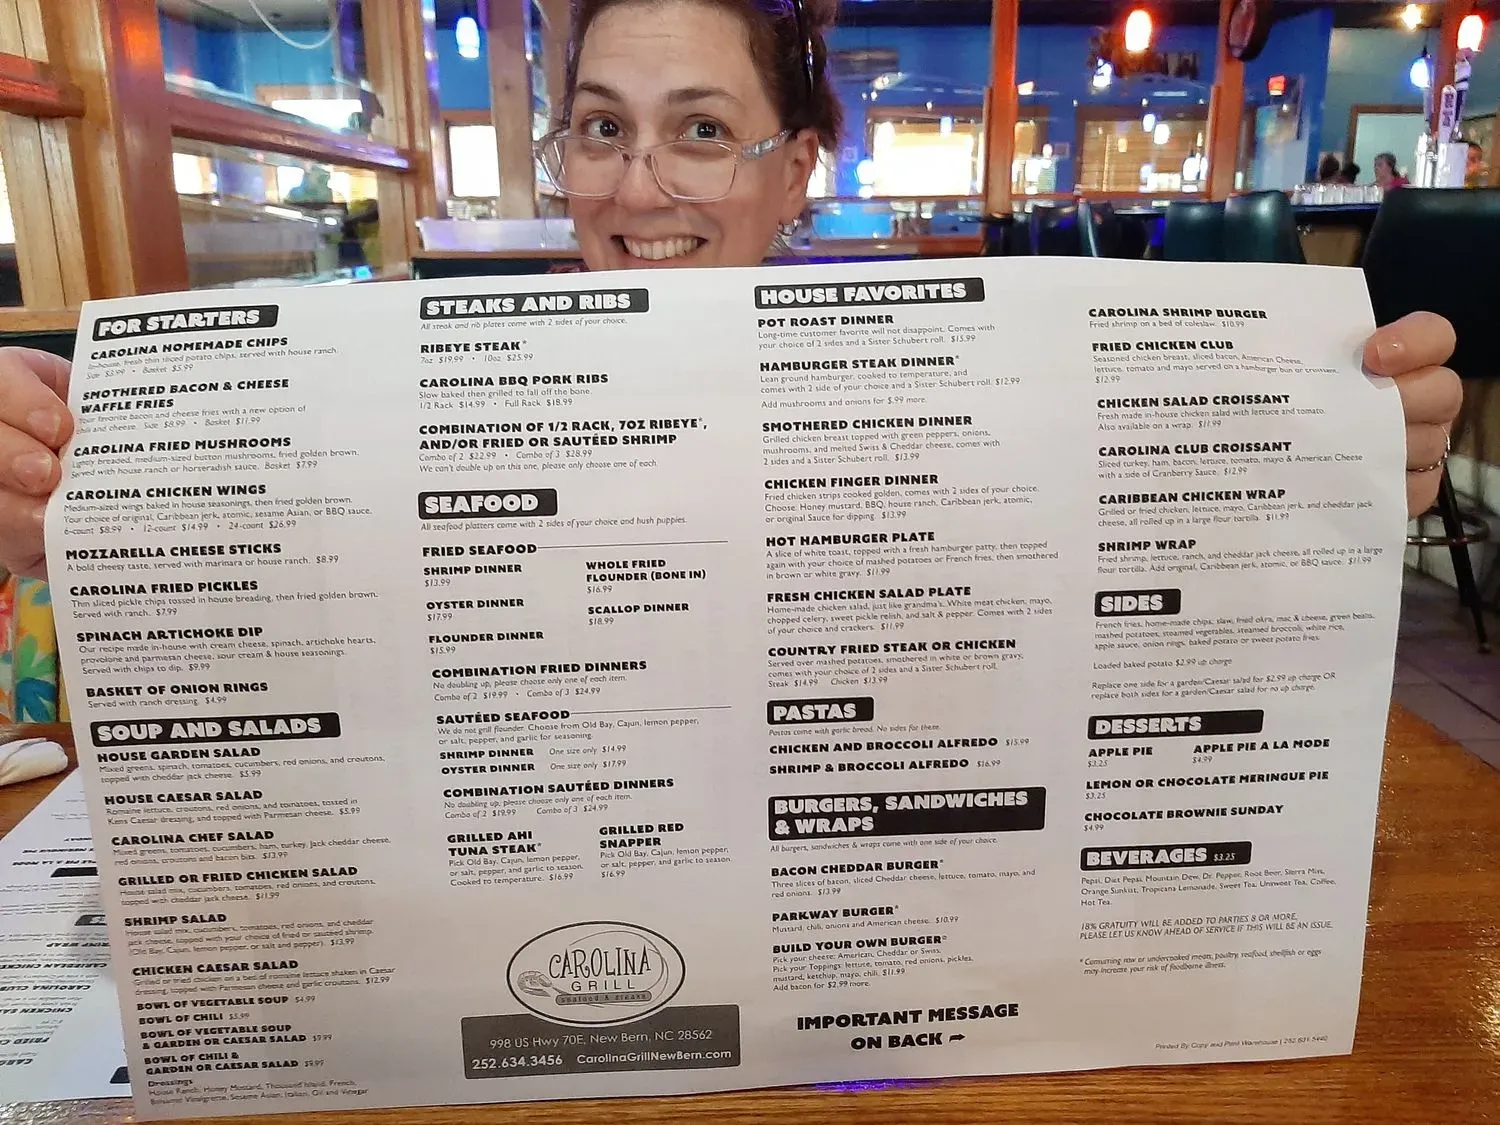 FOR STARTERS
CAROLINA HOMEMADE CHIPS
In-house, fresh thin sliced potato chips, served with house ranch.
Side $3.99 • Basket $5.99
SMOTHERED BACON & CHEESE
WAFFLE FRIES
Your favorite bacon and cheese fries with a new option of
chili and cheese. Side $8.99 • Basket $11.99
CAROLINA FRIED MUSHROOMS
Lightly breaded, medium-sized button mushrooms, fried golden brown.
Served with house ranch or horseradish sauce. Basket $7.99
CAROLINA CHICKEN WINGS
Medium-sized wings baked in house seasonings, then fried golden brown.
Your choice of original, Caribbean jerk, atomic, sesame Asian, or BBQ sauce.
6-count $8.99 • 12-count $14.99 • 24-count $26.99
MOZZARELLA CHEESE STICKS
A bold cheesy taste, served with marinara or house ranch. $8.99
CAROLINA FRIED PICKLES
Thin sliced pickle chips tossed in house breading, then fried golden brown.
Served with ranch. $7.99
SPINACH ARTICHOKE DIP
Our recipe made in-house with cream cheese, spinach, artichoke hearts,
provolone and parmesan cheese, sour cream & house seasonings.
Served with chips to dip. $9.99
BASKET OF ONION RINGS
Served with ranch dressing. $4.99
SOUP AND SALADS
HOUSE GARDEN SALAD
Mixed greens, spinach, tomatoes, cucumbers, red onions, and croutons,
topped with cheddar jack cheese. $5.99
HOUSE CAESAR SALAD
Romaine lettuce, croutons, red onions, and tomatoes, tossed in
Kens Caesar dressing, and topped with Parmesan cheese. $5.99
CAROLINA CHEF SALAD
Mixed greens, tomatoes, cucumbers, ham, turkey, jack cheddar cheese,
red onions, croutons and bacon bits. $13.99
GRILLED OR FRIED CHICKEN SALAD
House salad mix, cucumbers, tomatoes, red onions, and croutons,
topped with cheddar jack cheese. $11.99
SHRIMP SALAD
House salad mix, cucumbers, tomatoes, red onions, and cheddar
jack cheese, topped with your choice of fried or sautéed shrimp.
(Old Bay, Cajun, lemon pepper, or salt and pepper). $13.99
CHICKEN CAESAR SALAD
Grilled or fried chicken on a bed of romaine lettuce shaken in Caesar
dressing, topped with Parmesan cheese and garlic croutons. $12.99
BOWL OF VEGETABLE SOUP $4.99
BOWL OF CHILI $5.99
BOWL OF VEGETABLE SOUP
& GARDEN OR CAESAR SALAD $9.99
BOWL OF CHILI &
GARDEN OR CAESAR SALAD $9.99
Dressings
House Ranch, Honey Mustard, Thousand Island, French,
Balsamic Vinaigrette, Sesame Asian, Italian, Oil and Vinegar
STEAKS AND RIBS
All steak and rib plates come with 2 sides of your choice.
RIBEYE STEAK*
7oz $19.99 • 10oz $25.99
CAROLINA BBQ PORK RIBS
Slow baked then grilled to fall off the bone.
1/2 Rack $14.99 • Full Rack $18.99
COMBINATION OF 1/2 RACK, 7OZ RIBEYE*,
AND/OR FRIED OR SAUTÉED SHRIMP
Combo of 2 $22.99 • Combo of 3 $28.99
We can't double up on this one, please only choose one of each.
SEAFOOD
All seafood platters come with 2 sides of your choice and hush puppies.
FRIED SEAFOOD
SHRIMP DINNER
$13.99
WHOLE FRIED
FLOUNDER (BONE IN)
$16.99
OYSTER DINNER
$17.99
SCALLOP DINNER
$18.99
FLOUNDER DINNER
$15.99
COMBINATION FRIED DINNERS
No doubling up, please choose only one of each item.
Combo of 2 $19.99 • Combo of 3 $24.99
SAUTÉED SEAFOOD
We do not grill flounder. Choose from Old Bay, Cajun, lemon pepper,
or salt, pepper, and garlic for seasoning.
SHRIMP DINNER One size only $14.99
OYSTER DINNER One size only $17.99
COMBINATION SAUTÉED DINNERS
No doubling up, please choose only one of each item.
Combo of 2 $19.99 Combo of 3 $24.99
GRILLED AHI
TUNA STEAK*
Pick Old Bay, Cajun, lemon pepper,
or salt, pepper, and garlic to season.
Cooked to temperature. $16.99
GRILLED RED
SNAPPER
Pick Old Bay, Cajun, lemon pepper,
or salt, pepper, and garlic to season.
$16.99
CAROLINA
GRILL
seafood & steaks
998 US Hwy 70E, New Bern, NC 28562
252.634.3456 CarolinaGrillNewBern.com
HOUSE FAVORITES
POT ROAST DINNER
Long-time customer favorite will not disappoint. Comes with
your choice of 2 sides and a Sister Schubert roll. $15.99
HAMBURGER STEAK DINNER*
Lean ground hamburger, cooked to temperature, and
comes with 2 side of your choice and a Sister Schubert roll. $12.99
Add mushrooms and onions for $.99 more.
SMOTHERED CHICKEN DINNER
Grilled chicken breast topped with green peppers, onions,
mushrooms, and melted Swiss & Cheddar cheese, comes with
2 sides and a Sister Schubert roll. $13.99
CHICKEN FINGER DINNER
Fried chicken strips cooked golden, comes with 2 sides of your choice.
Choose: Honey mustard, BBQ, house ranch, Caribbean jerk, atomic,
or original Sauce for dipping. $13.99
HOT HAMBURGER PLATE
A slice of white toast, topped with a fresh hamburger patty, then topped
again with your choice of mashed potatoes or French fries, then smothered
in brown or white gravy. $11.99
FRESH CHICKEN SALAD PLATE
Home-made chicken salad, just like grandma's. White meat chicken, mayo,
chopped celery, sweet pickle relish, and salt & pepper. Comes with 2 sides
of your choice and crackers. $11.99
COUNTRY FRIED STEAK OR CHICKEN
Served over mashed potatoes, smothered in white or brown gravy,
comes with your choice of 2 sides and a Sister Schubert roll.
Steak $14.99 Chicken $13.99
PASTAS
Pastas come with garlic bread. No sides for these.
CHICKEN AND BROCCOLI ALFREDO $15.99
SHRIMP & BROCCOLI ALFREDO $16.99
BURGERS, SANDWICHES
& WRAPS
All burgers, sandwiches & wraps come with one side of your choice.
BACON CHEDDAR BURGER*
Three slices of bacon, sliced Cheddar cheese, lettuce, tomato, mayo, and
red onions. $13.99
PARKWAY BURGER*
Mustard, chili, onions and American cheese. $10.99
BUILD YOUR OWN BURGER*
Pick your cheese: American, Cheddar or Swiss.
Pick your Toppings: lettuce, tomato, red onions, pickles,
mustard, ketchup, mayo, chili. $11.99
Add bacon for $2.99 more.
IMPORTANT MESSAGE
ON BACK
CAROLINA SHRIMP BURGER
Fried shrimp on a bed of coleslaw. $10.99
FRIED CHICKEN CLUB
Seasoned chicken breast, sliced bacon, American Cheese,
lettuce, tomato and mayo served on a hamburger bun or croissant.
$12.99
CHICKEN SALAD CROISSANT
Fresh made in-house chicken salad with lettuce and tomato.
Also available on a wrap. $11.99
CAROLINA CLUB CROISSANT
Sliced turkey, ham, bacon, lettuce, tomato, mayo & American Cheese
with a side of Cranberry Sauce. $12.99
CARIBBEAN CHICKEN WRAP
Grilled or fried chicken, lettuce, mayo, Caribbean jerk, and cheddar jack
cheese, all rolled up in a large flour tortilla. $11.99
SHRIMP WRAP
Fried shrimp, lettuce, ranch, and cheddar jack cheese, all rolled up in a large
flour tortilla. Add original, Caribbean jerk, atomic, or BBQ sauce. $11.99
SIDES
French fries, home-made chips, slaw, fried okra, mac & cheese, green beans,
mashed potatoes, steamed vegetables, steamed broccoli, white rice,
apple sauce, onion rings, baked potato or sweet potato fries.
Loaded baked potato $2.99 up charge
Replace one side for a garden/Caesar salad for $2.99 up charge OR
replace both sides for a garden/Caesar salad for no up charge.
DESSERTS
APPLE PIE
$3.25
APPLE PIE A LA MODE
$4.99
LEMON OR CHOCOLATE MERINGUE PIE
$3.25
CHOCOLATE BROWNIE SUNDAY
$4.99
BEVERAGES $3.25
Pepsi, Diet Pepsi, Mountain Dew, Dr. Pepper, Root Beer, Sierra Mist,
Orange Sunkist, Tropicana Lemonade, Sweet Tea, Unsweet Tea, Coffee,
Hot Tea.
18% GRATUITY WILL BE ADDED TO PARTIES 8 OR MORE,
PLEASE LET US KNOW AHEAD OF SERVICE IF THIS WILL BE AN ISSUE.
* Consuming raw or undercooked meats, poultry, seafood, shellfish or eggs
may increase your risk of foodborne illness.
Printed By Copy and Print Warehouse | 252.631.5440